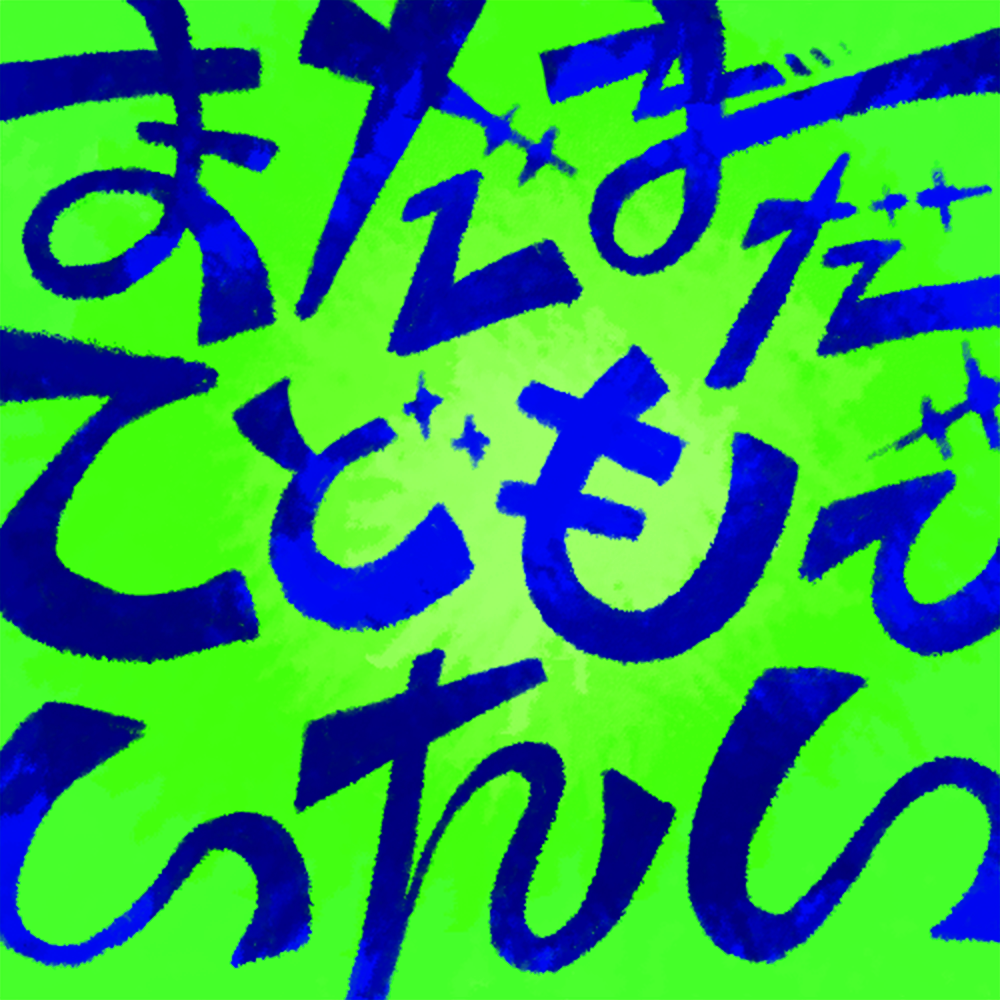 まだまだ
こどもで
いたい